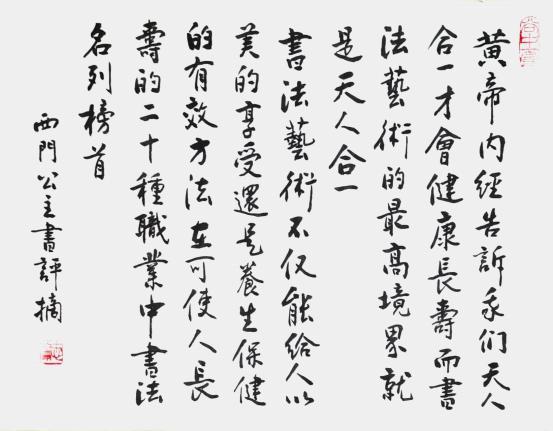 黄帝内經告訴我们天人
合一才會健康長壽而書
法藝術的最高境界就
是天人合一
書法藝術不仅能给人以
美的享受還是養生保健
的有效方法在可使人長
壽的二十種職業中書法
名列榜首
西門公主書評摘